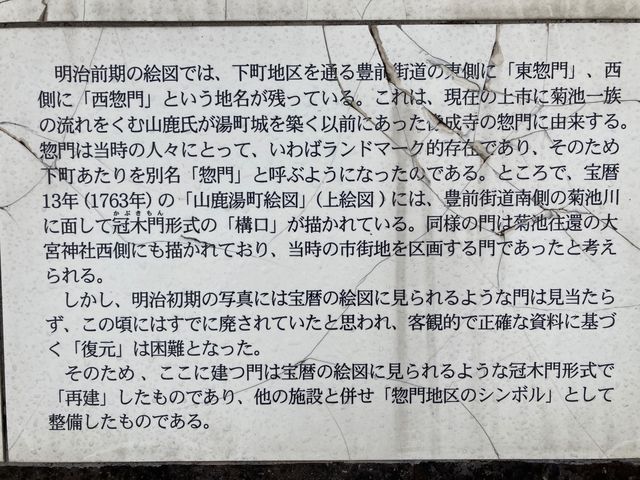 明治前期の絵図では、下町地区を通る豊前街道の東側に「東惣門」、西
側に「西惣門」という地名が残っている。これは、現在の上市に菊池一族
の流れをくむ山鹿氏が湯町城を築く以前にあった 成寺の惣門に由来する。
惣門は当時の人々にとって、いわばランドマーク的存在であり、そのため
下町あたりを別名「惣門」と呼ぶようになったのである。ところで、宝暦
13年(1763年)の「山鹿湯町絵図」(上絵図)には、豊前街道南側の菊池川
かぶきもん
に面して冠木門形式の「構口」が描かれている。同様の門は菊池往還の大
宮神社西側にも描かれており、当時の市街地を区画する門であったと考え
られる。
しかし、明治初期の写真には宝暦の絵図に見られるような門は見当たら
ず、この頃にはすでに廃されていたと思われ、客観的で正確な資料に基づ
く「復元」は困難となった。
そのため、ここに建つ門は宝暦の絵図に見られるような冠木門形式で
「再建」したものであり、他の施設と併せ「惣門地区のシンボル」として
整備したものである。